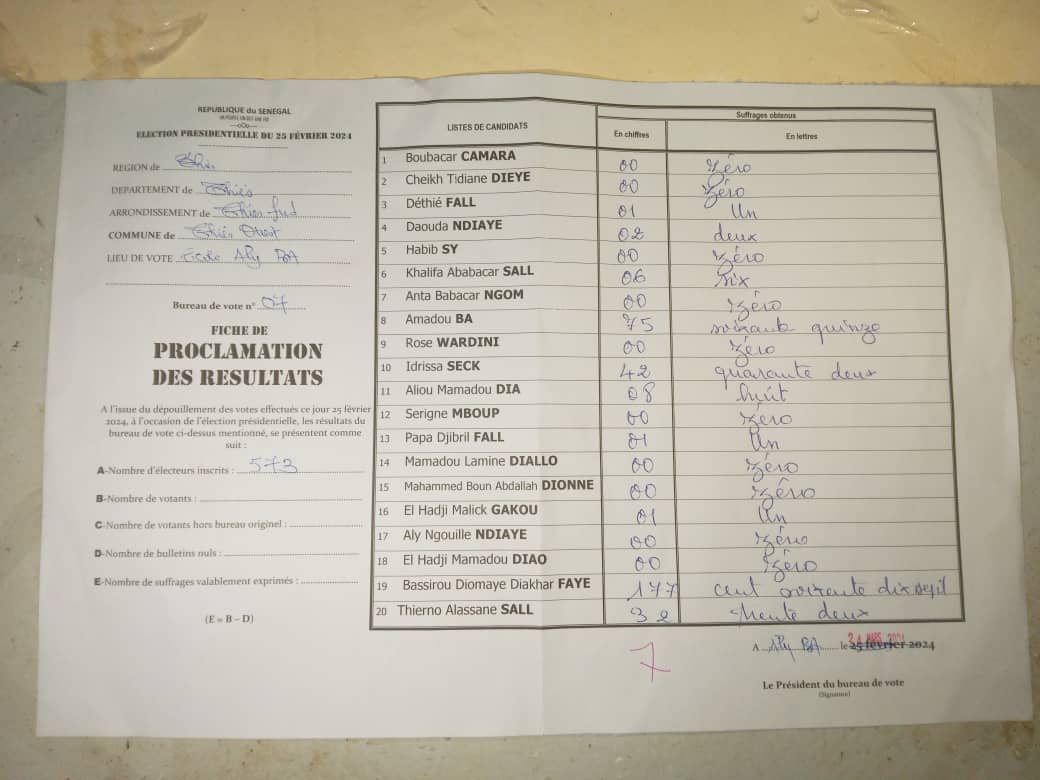 REPUBLIQUE du SENEGAL
---oOo---
ELECTION PRESIDENTIELLE DU 25 FÉVRIER 2024
REGION de Thiès
DEPARTEMENT de Thiès
ARRONDISSEMENT de Thies-Sud
COMMUNE de Thiès Ouest
LIEU DE VOTE Ecole Aly BA
Bureau de vote n° 07
FICHE DE
PROCLAMATION
DES RESULTATS
A l'issue du dépouillement des votes effectués ce jour 25 février
2024, à l'occasion de l'élection présidentielle, les résultats du
bureau de vote ci-dessus mentionné, se présentent comme
suit :
A-Nombre d'électeurs inscrits : 573
B-Nombre de votants :
C-Nombre de votants hors bureau originel :
D-Nombre de bulletins nuls :
E-Nombre de suffrages valablement exprimés :
(E = B – D)
LISTES DE CANDIDATS
Suffrages obtenus
En chiffres En lettres
1 Boubacar CAMARA 00 Zéro
2 Cheikh Tidiane DIEYE 00 Zéro
3 Déthié FALL 01 Un
4 Daouda NDIAYE 02 deux
5 Habib SY 00 Zéro
6 Khalifa Ababacar SALL 06 Six
7 Anta Babacar NGOM 00 Zéro
8 Amadou BA 75 soixante quinze
9 Rose WARDINI 00 Zéro
10 Idrissa SECK 42 quarante deux
11 Aliou Mamadou DIA 08 huit
12 Serigne MBOUP 00 Zéro
13 Papa Djibril FALL 01 Un
14 Mamadou Lamine DIALLO 00 Zéro
15 Mahammed Boun Abdallah DIONNE 00 Zéro
16 El Hadji Malick GAKOU 01 Un
17 Aly Ngouille NDIAYE 00 Zéro
18 El Hadji Mamadou DIAO 00 Zéro
19 Bassirou Diomaye Diakhar FAYE 177 cent soixante dix sept
20 Thierno Alassane SALL 32 trente deux
7
A Aly BA le 25 février 2024
Le Président du bureau de vote
(Signature)